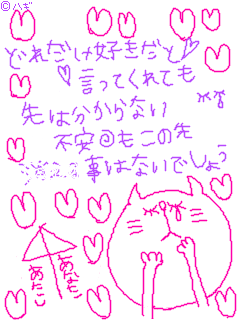 © ハギ
どれだけ好きだと
言ってくれても
先は分からない
不安@もこの先
事はないでしょう
あなた
あたし